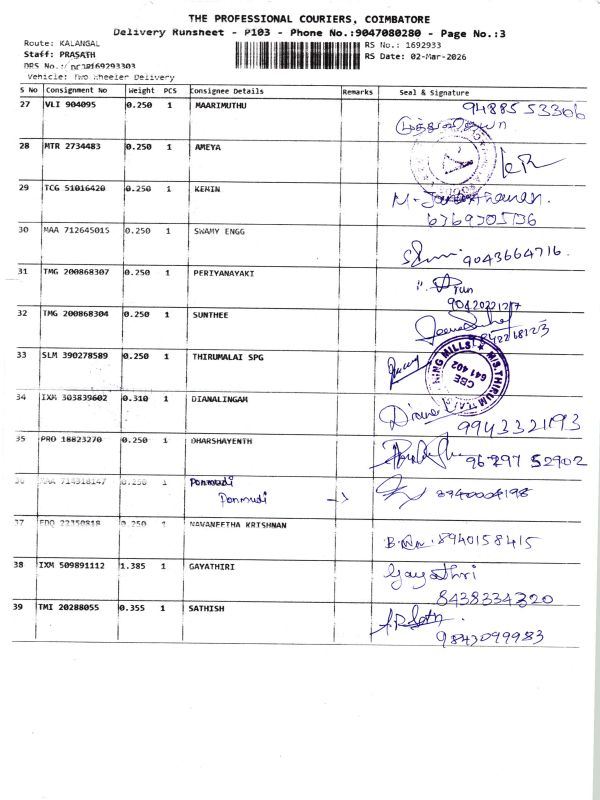 THE PROFESSIONAL COURIERS, COIMBATORE
Delivery Runsheet - P103 - Phone No.:9047080280 - Page No.:3
Route: KALANGAL
RS No.: 1692933
Staff: PRASATH
RS Date: 02-Mar-2026
DRS No.:
Vehicle: Two Wheeler Delivery
S No Consignment No Weight PCS Consignee Details Remarks Seal & Signature
27 VLI 904095 0.250 1 MAARIMUTHU 9488553306
28 MTR 2734483 0.250 1 AMEYA
29 TCG 51016420 0.250 1 KEHIN
30 MAA 712645015 0.250 1 SWAMY ENGG
9043664716.
31 TMG 200868307 0.250 1 PERIYANAYAKI
32 TMG 200868304 0.250 1 SUNTHEE
33 SLM 390278589 0.250 1 THIRUMALAI SPG
CBE
641 402
34 IXM 303839602 0.310 1 DIANALINGAM
9943321193
35 PRO 18823270 0.250 1 DHARSHAYENTH
96297 52902
714918147 0.250 1 Ponmudi
Ponmudi -> 8940004198
37 EDQ 22350818 0.250 1 NAVANEETHA KRISHNAN
8940158415
38 IXM 509891112 1.385 1 GAYATHRI Gayathri
8438334320
39 TMI 20288055 0.355 1 SATHISH
9843099983